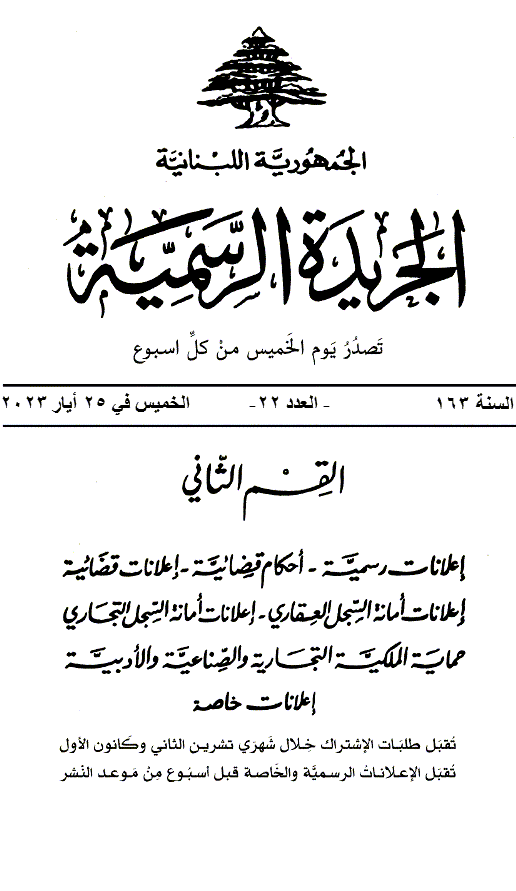 الجمهورية اللبنانية
الجريدة الرسمية
تَصدُرُ يَوم الخَميس منْ كلِّ اسبوع
السنة ١٦٣ - العدد ٢٢- الخميس في ٢٥ أيار ٢٠٢٣
القِسم الثّاني
إعلانات رسميَّة - أحكام قضائيَّة - إعلانات قضائية
إعلانات أمانة السّجل العقاري - إعلانات أمانة السّجل التجاري
حماية الملكيَّة التجارية والصِّناعيَّة والأدبيَّة
إعلانات خاصة
تُقبَل طلبَات الإشتراك خِلال شَهرَي تشرين الثاني وكَانون الأول
تُقبَل الإعلاناتُ الرسميَّة والخَاصة قبل أسبُوع مِنْ مَوعد النّشر